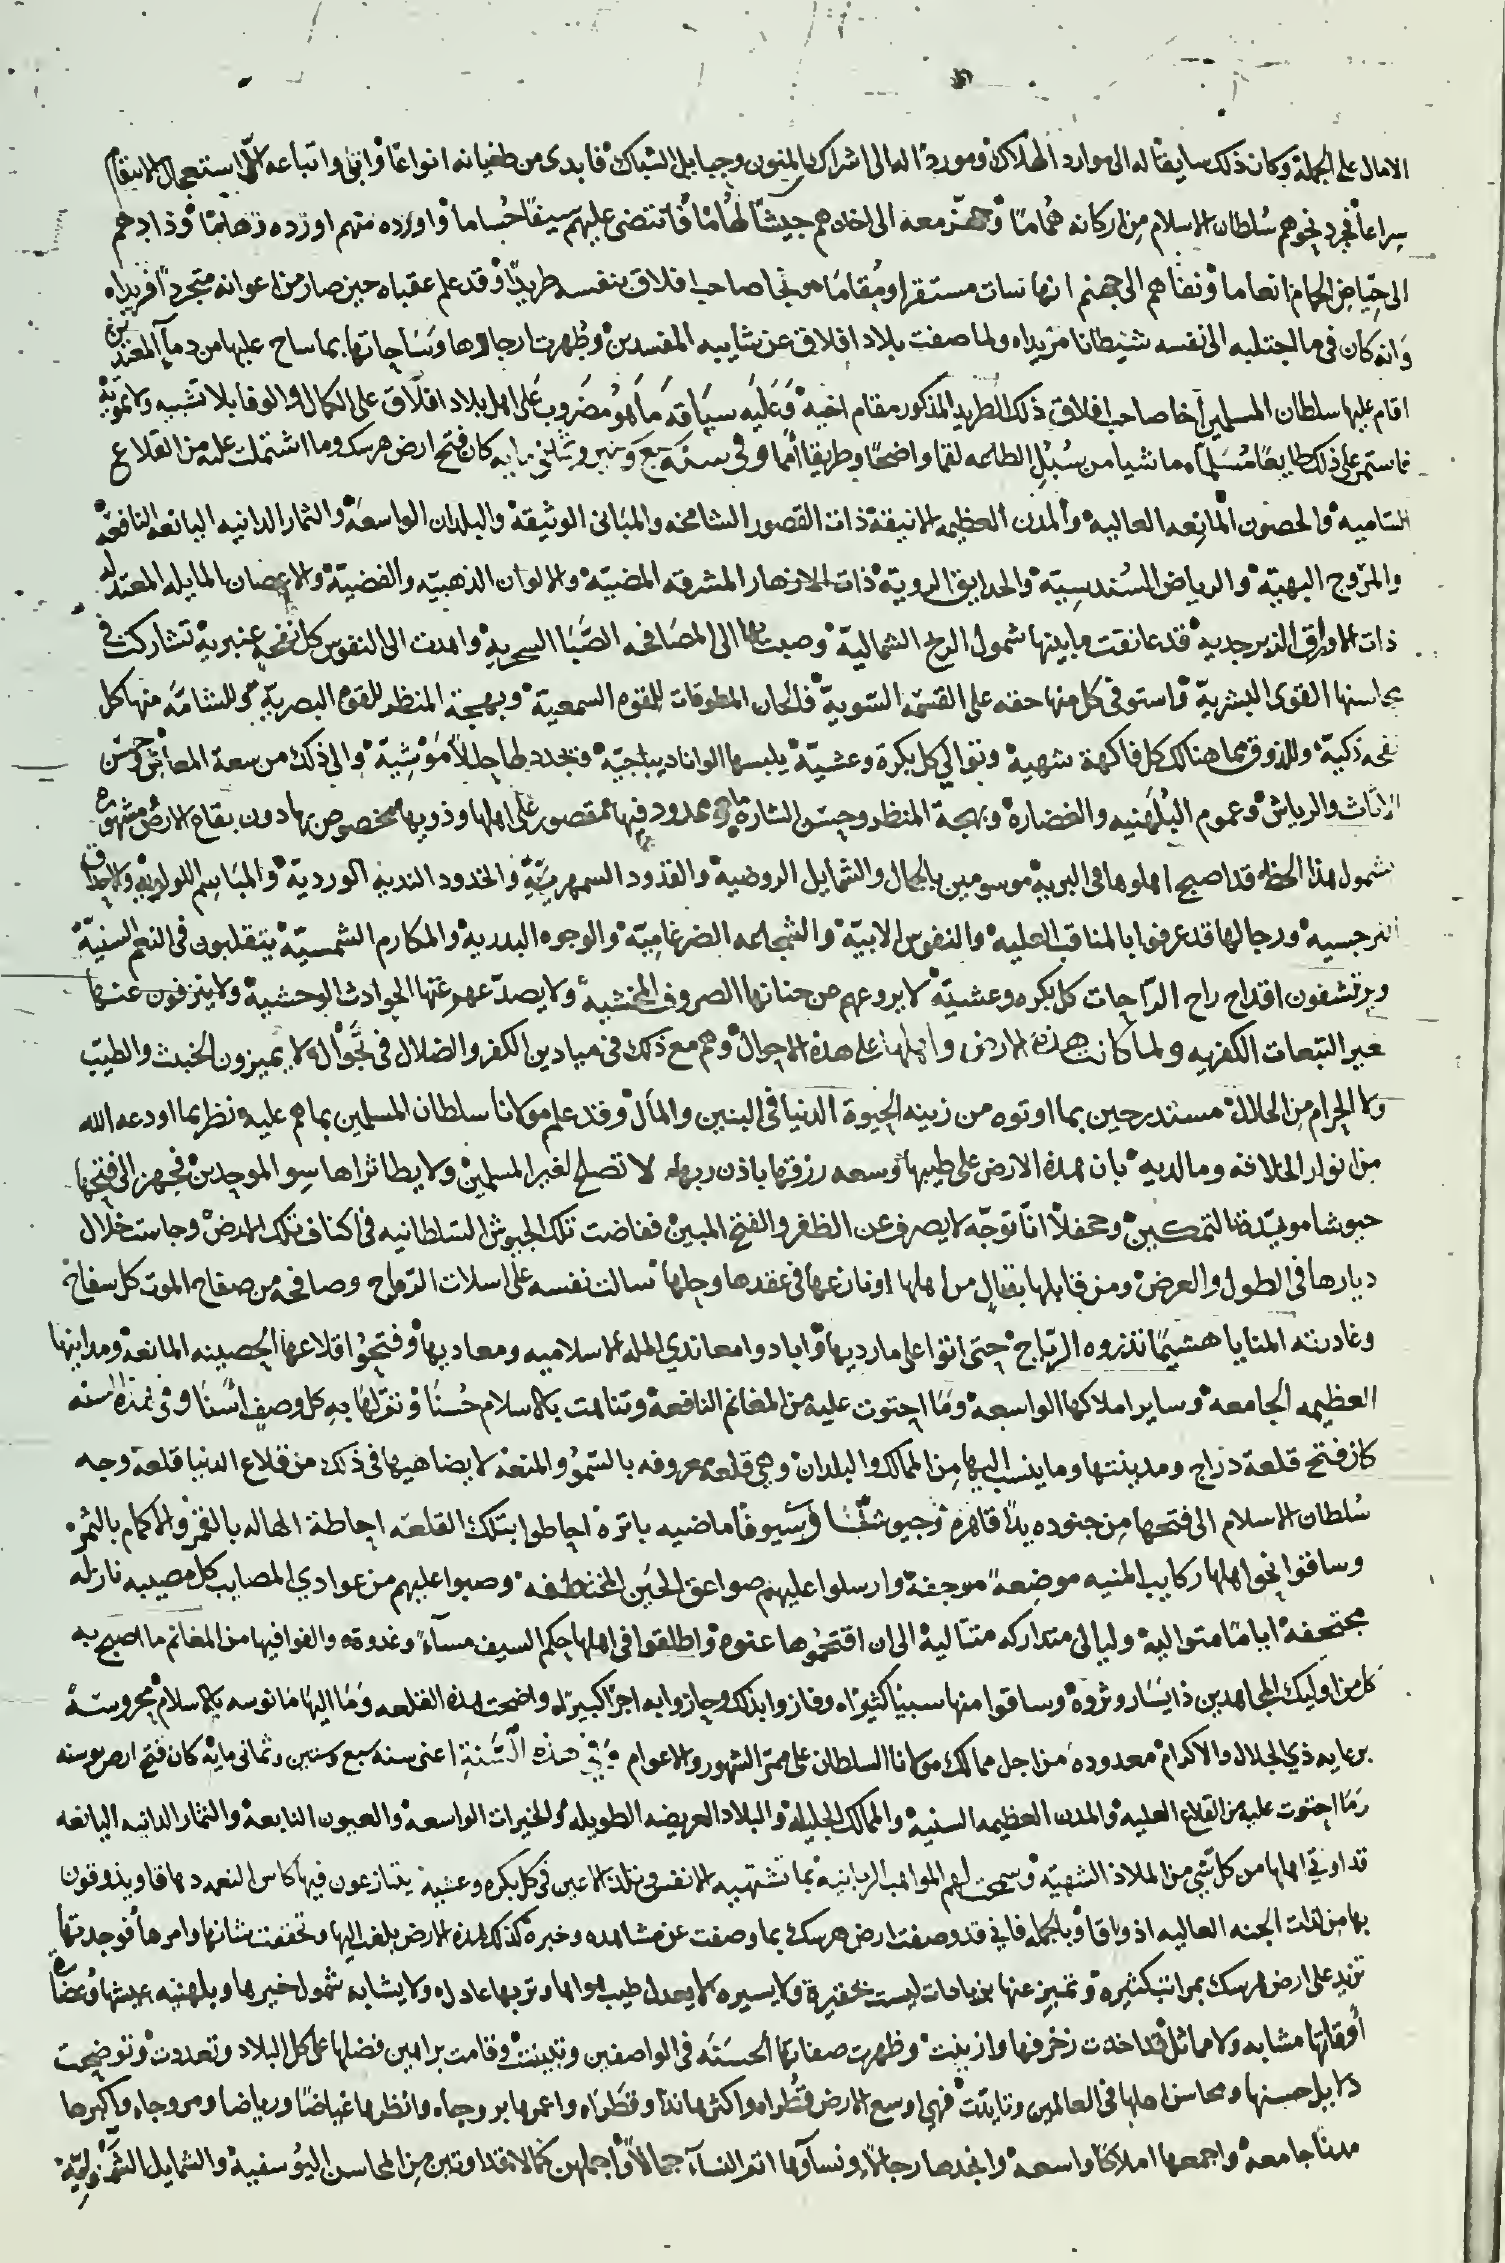 الامال على الجملة وكان ذلك سايقا له الى موارد الهلاك وموردا له الى اشراك المنون وحبايل الشباك فابدى من طغيانه انواعا وانبى واتباعه الا استعجال الانتقام
سراعا فجرد نحوهم سُلطان الاسلام من اركانه هُمامًا وجهز معه الى اخذهم جيشًا لهامًا فانتضى عليهم سيفًا حُساما واورده منهم اورده وذادهم
الى حياض الحمام انعاما ونفاهم الى جهنم انها سات مستقرا ومُقامًا ونجا صاحب افلاق بنفسه طريدًا وقد علم عقباه حين صار من اعوانه متجردا فريدا
وانه كان في ما اجتلبه الى نفسه شيطانا مريدا ولما صفت بلاد افلاق عن شايبه المفسدين وطُهرت ارجاوها وساحاتها بما ساح عليها من دمآ المعتدين
اقام عليها سلطان المسلمين اخا صاحب افلاق ذلك الطريد المذكور مقام اخيه وعليه سياقه ما هو مضروب على اهل بلاد افلاق على الكمال والوفا بلا تشبيه ولا تمويه
فاستمر على ذلك طايعًا مُسَلما ماشيا من سُبُل الطاعه لقما واضحًا وطريقًا أمما وفي سنة سبع وستين وثماني مايه كان فتح ارض هرسك وما اشتملت عليه من القلاع
الساميه والحصون المانعه العاليه والمدن العظيمه الانيقة ذات القصور الشامخه والمبانى الوثيقة والبلدان الواسعة والثمار الدانيه اليانعه النافعه
والمروج البهية والرياض السُندسية والحدايق الروية ذات الازهار المشرقه المضية والالوان الذهبيه والفضية والاغصان المايله المعتدله
ذات الاوراق الزبرجديه قد عانقت ما بينها شمول الريح الشمالية وصبت بها الى المصافحه الصَّبا السحرية واهدت الى النفوس كل نفحة عنبرية تشاركت في
محاسنها القوى البشرية واستوفى كل منها حقه على القسمة السوية فلالحان المطوقات للقوه السمعية وبهجة المنظر للقوه البصرية وللشامة منها كل
نفحه زكية وللذوق مما هنالك كل فاكهة شهية وتوالي كل بكرة وعشية يلبسها الوانا ديباجية وتجدد لها حللا موشية والى ذلك من سعة المعاش وحسن
الاثاث والرياش وعموم البُلَهنيه والغضارة وبهجة المنظر وحسن الشارة ما هو محدود فيها مقصور على اهلها وذويها مخصوص بها دون بقاع الارض مشهوره
بشمول هذا الحظ قد اصبح اهلوها فى البرية موسومين بالجمال والشمايل الروضية والقدود السمهرية والخدود النديه الوردية والمباسم اللولوية والاحداق
النرجسيه ورجالها قد عرفوا بالمناقب العلية والنفوس الابية والشجاعه الضرغامية والوجوه البدرية والمكارم الشمسية يتقلبون في النعم السنية
ويرتشفون اقداح راح الراحات كل بكره وعشية لا يروعهم من حنانها الصروف المخشية ولا يصدهم عنها الحوادث الوحشية ولا ينزفون عنها
غير التبعات الكفريه ولما كانت هذه الارض واهلها على هذه الاحوال وهم مع ذلك فى ميادين الكفر والضلال في تجوال لا يميزون الخبيث والطيب
ولا الحرام من الحلال مستدرجين بما اوتوه من زينه الحيوة الدنيا فى البنين والمال وقد علم مولانا سلطان المسلمين بما هم عليه نظرا بما اودعه الله
من انوار الخلافه وما لديه بان هذه الارض على طيبها وسعه رزقها باذن ربها لا تصلح لغير المسلمين ولا يطا ثراها سوا الموحدين فجهز الى فتحها
جيوشا مويدة بالتمكين وجحفلا انا توجه لا يصرف عن الظفر والفتح المبين ففاضت تلك الجيوش السلطانيه فى اكناف تلك الارض وجاست خلال
ديارها فى الطول والعرض ومن قابلها بقتال من اهلها او نازعها فى عقدها وحلها سالت نفسه على اسلات الرماح وصافحه من صفاح الموت كل سفاح
وغادرته المنايا هشيمًا تذروه الرياح حتى اتوا على مارديها وابادوا معاندي الملة الاسلاميه ومعاديها وفتحوا قلاعها الحصينه المانعة ومداينها
العظيمه الجامعه وساير املاكها الواسعة وما احتوت عليه من المغانم النافعة وتناهت بالاسلام حُسنًا وتولاها به كل وصف اسنا وفى هذه السنه
كان فتح قلعة دزاج ومدينتها وما ينسب اليها من الممالك والبلدان وهي قلعه معروفه بالسمو والمنعة لا يضاهيها في ذلك من قلاع الدنيا قلعة وجه
سُلطان الاسلام الى فتحها من جنوده يدًا قاهرة وجيوشا وسيوفًا ماضيه باتره احاطوا بتلك القلعه احاطة الهاله بالقمر والاكمام بالثمر
وساقوا نحو اهلها ركايب المنيه موضعة موجفة وارسلوا عليهم صواعق الحَين المختطفه وصبوا عليهم من عوادي المصايب كل مصيبه نازله
مجتحفة اياما متواليه وليالى متداركه متتاليه الى ان اقتحموها عنوه واطلقوا فى اهلها حكم السيف مسآءً وغدوة والفوا فيها من المغانم ما اصبح به
كل من اوليك المجاهدين ذا يسار وثروة وساقوا منها سبيًا كثيرًا وفازوا بذلك وحازوا به اجرًا كبيرا واضحت هذه القلعه وما اليها مانوسه بالاسلام محروسة
برعايه ذي الجلال والاكرام معدوده من اجل ممالك مولانا السلطان على ممر الشهور والاعوام وفي هذه السنة اعنى سنه سبع وستين وثمانى مايه كان فتح ارض بوسنه
وما احتوت عليه من القلاع العليه والمدن العظيمه السنية والممالك الجليلة والبلاد العريضه الطويله والخيرات الواسعه والعيون النابعة والثمار الدانيه اليانعه
قد اوتي اهلها من كل شي من الملاذ الشهية وسمحت لهم المواهب الربانية بما تشتهيه الانفس وتلذ الاعين في كل بكره وعشيه يتنازعون فيها كاس النعم دهاقا ويذوقون
بها من لذات الجنه العاليه اذواقا وبالجمله فاني قد وصفت ارض هرسك بما وصفت عن مشاهده وخبره كذلك هذه الارض بلغت اليها وتحققت شانها وامرها فوجدتها
تزيد على ارض هرسك بمراتب كثيره وتميز عنها بزيادات ليست بحقيرة ولا يسيره لا يعدل طيب هوائها وتربها عادل ولا يشابه شمول خيرها وبلهنيه عيشها وغضارة
أوقاتها مشابه ولا مماثل قد اخذت زخرفها وازينت وظهرت صفاتها الحسنه فى الواصفين وتبينت وقامت براهين فضلها على كل البلاد وتعددت وتوضحت
دلايل حسنها ومحاسن اهلها فى العالمين وتايدت فهي اوسع الارض قُطرا واكثرها ندًا وقَطرا واعمرها بروجا وانظرها غياضًا ورياضا ومروجا واكبرها
مدنًا جامعه واجمعها املاكا واسعه وانجدها رجالا ونساؤها اتم النسآء جمالا واجملهن كمالا قد اوتين من المحاسن اليُوسفية والشمايل الشمولية